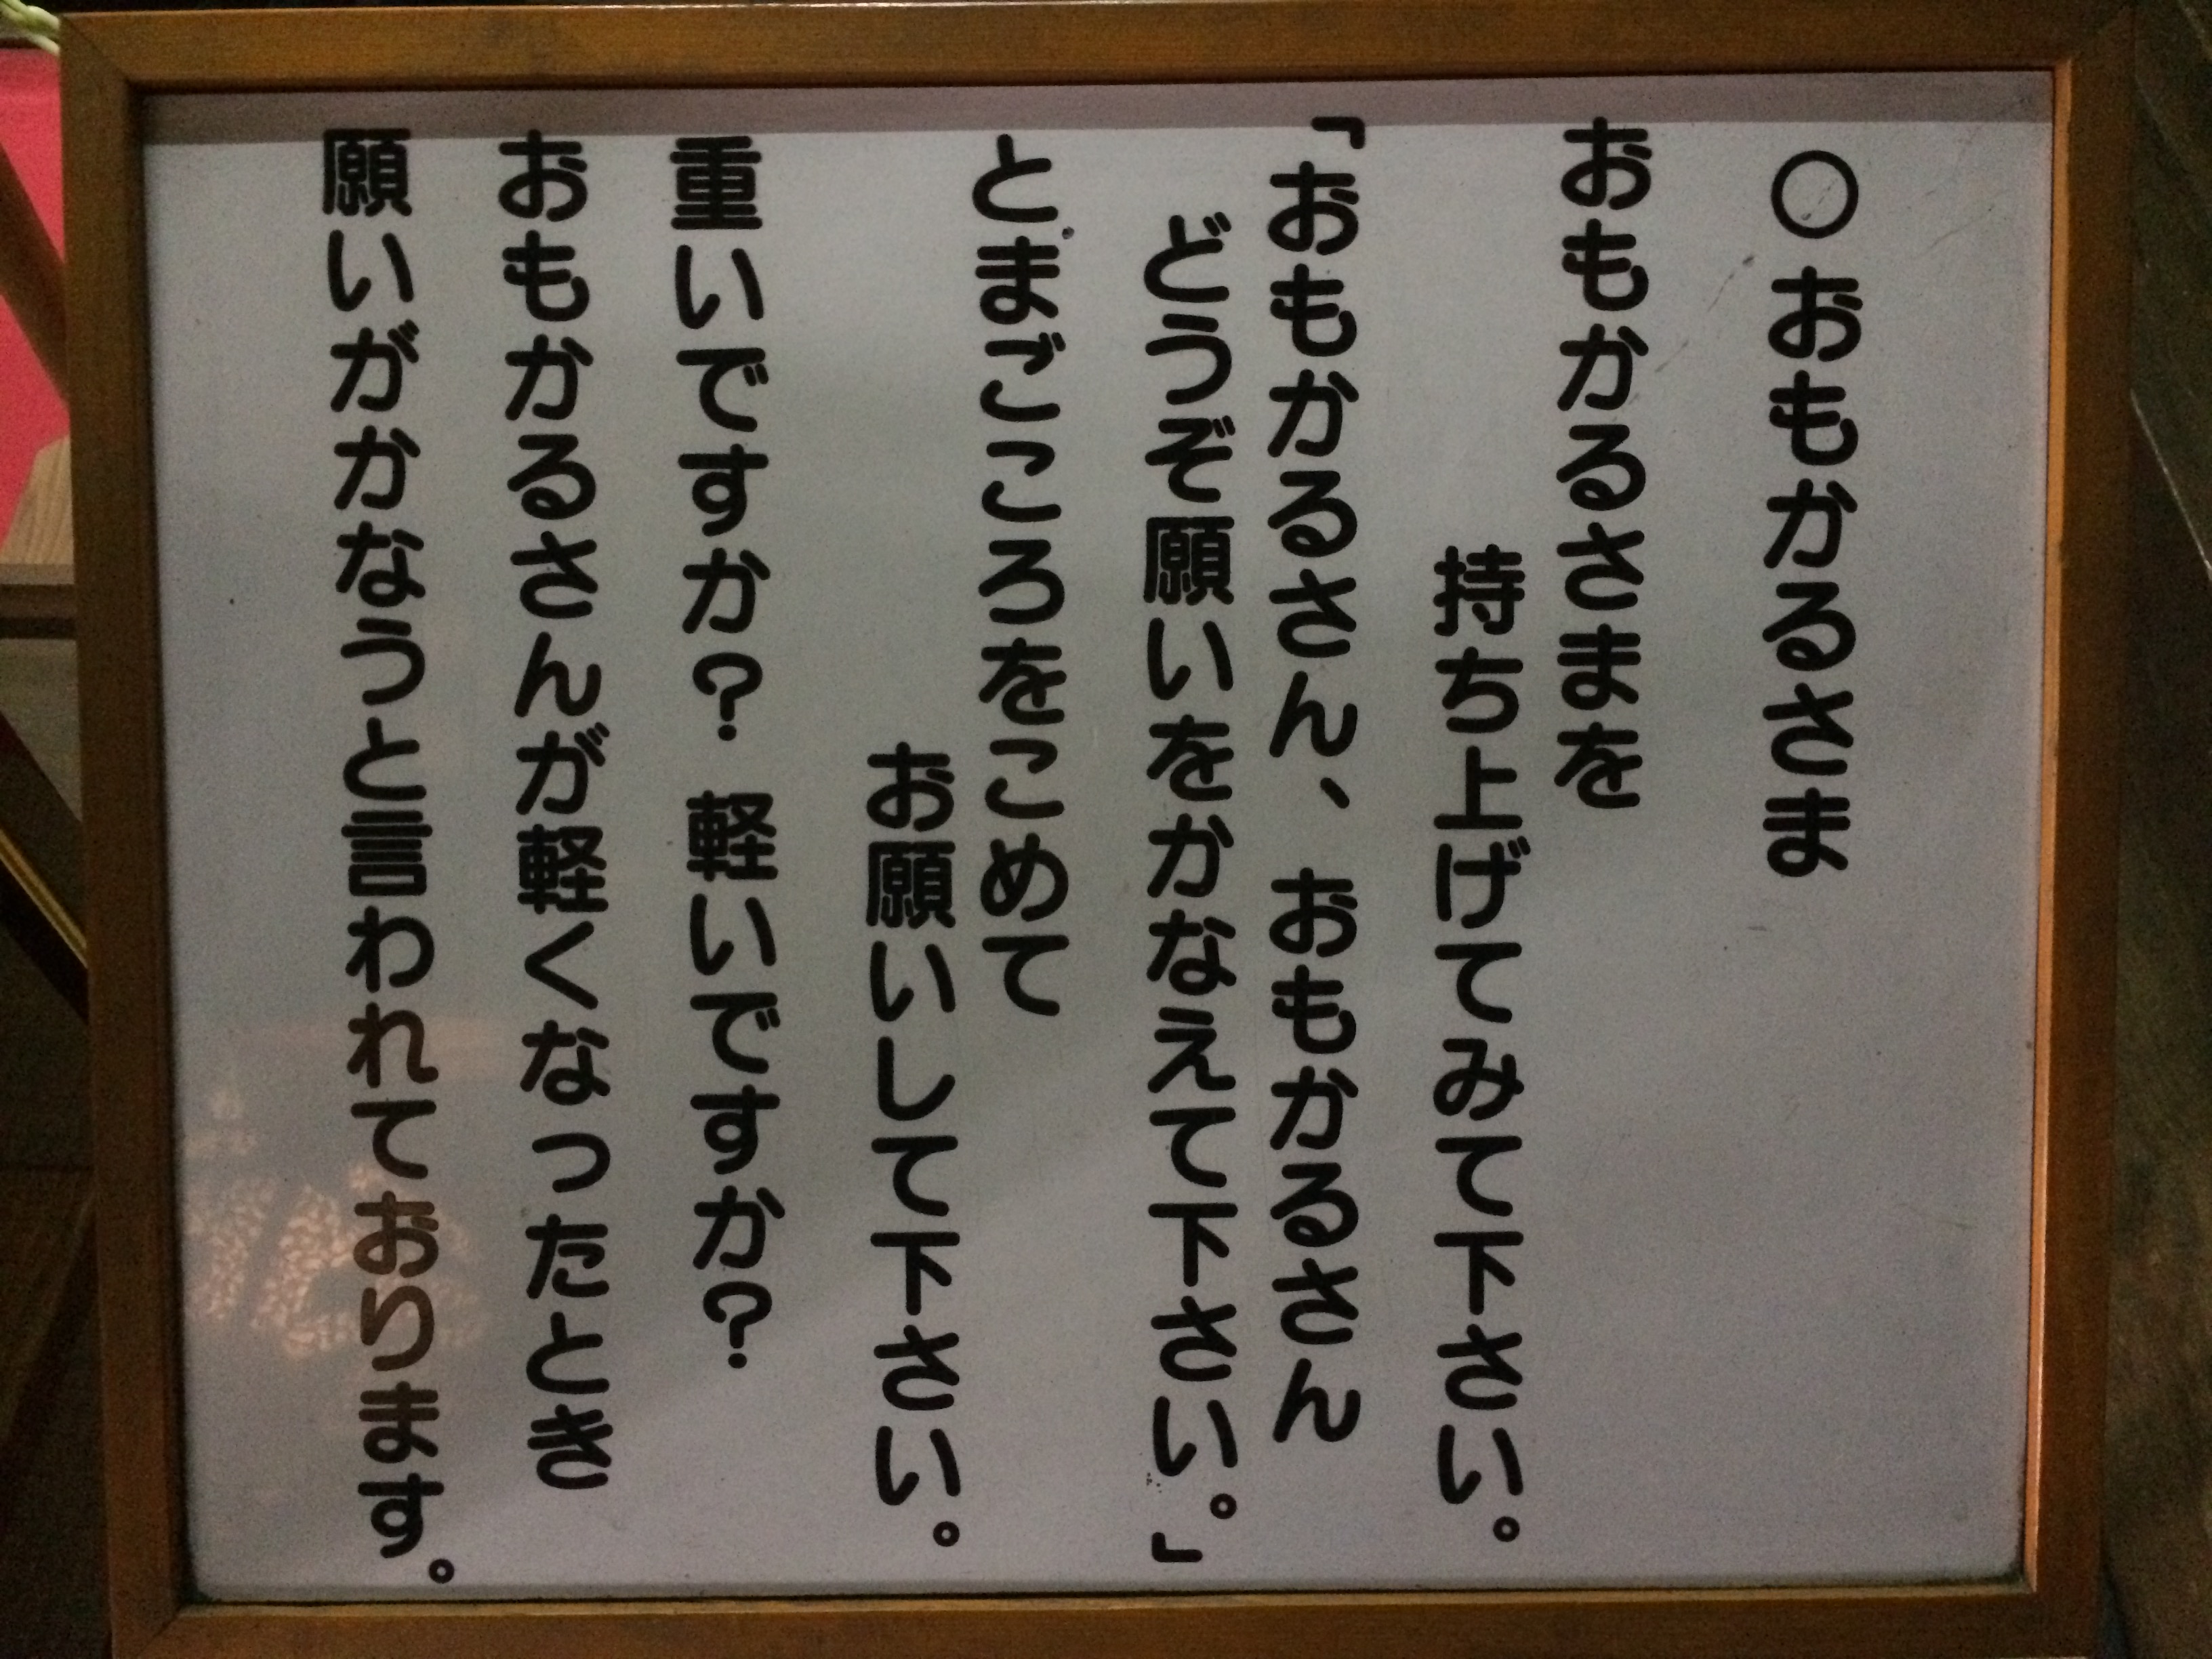 ○おもかるさま
おもかるさまを
持ち上げてみて下さい。
「おもかるさん、おもかるさん
どうぞ願いをかなえて下さい。」
とまごころをこめて
お願いして下さい。
重いですか？軽いですか？
おもかるさんが軽くなったとき
願いがかなうと言われております。